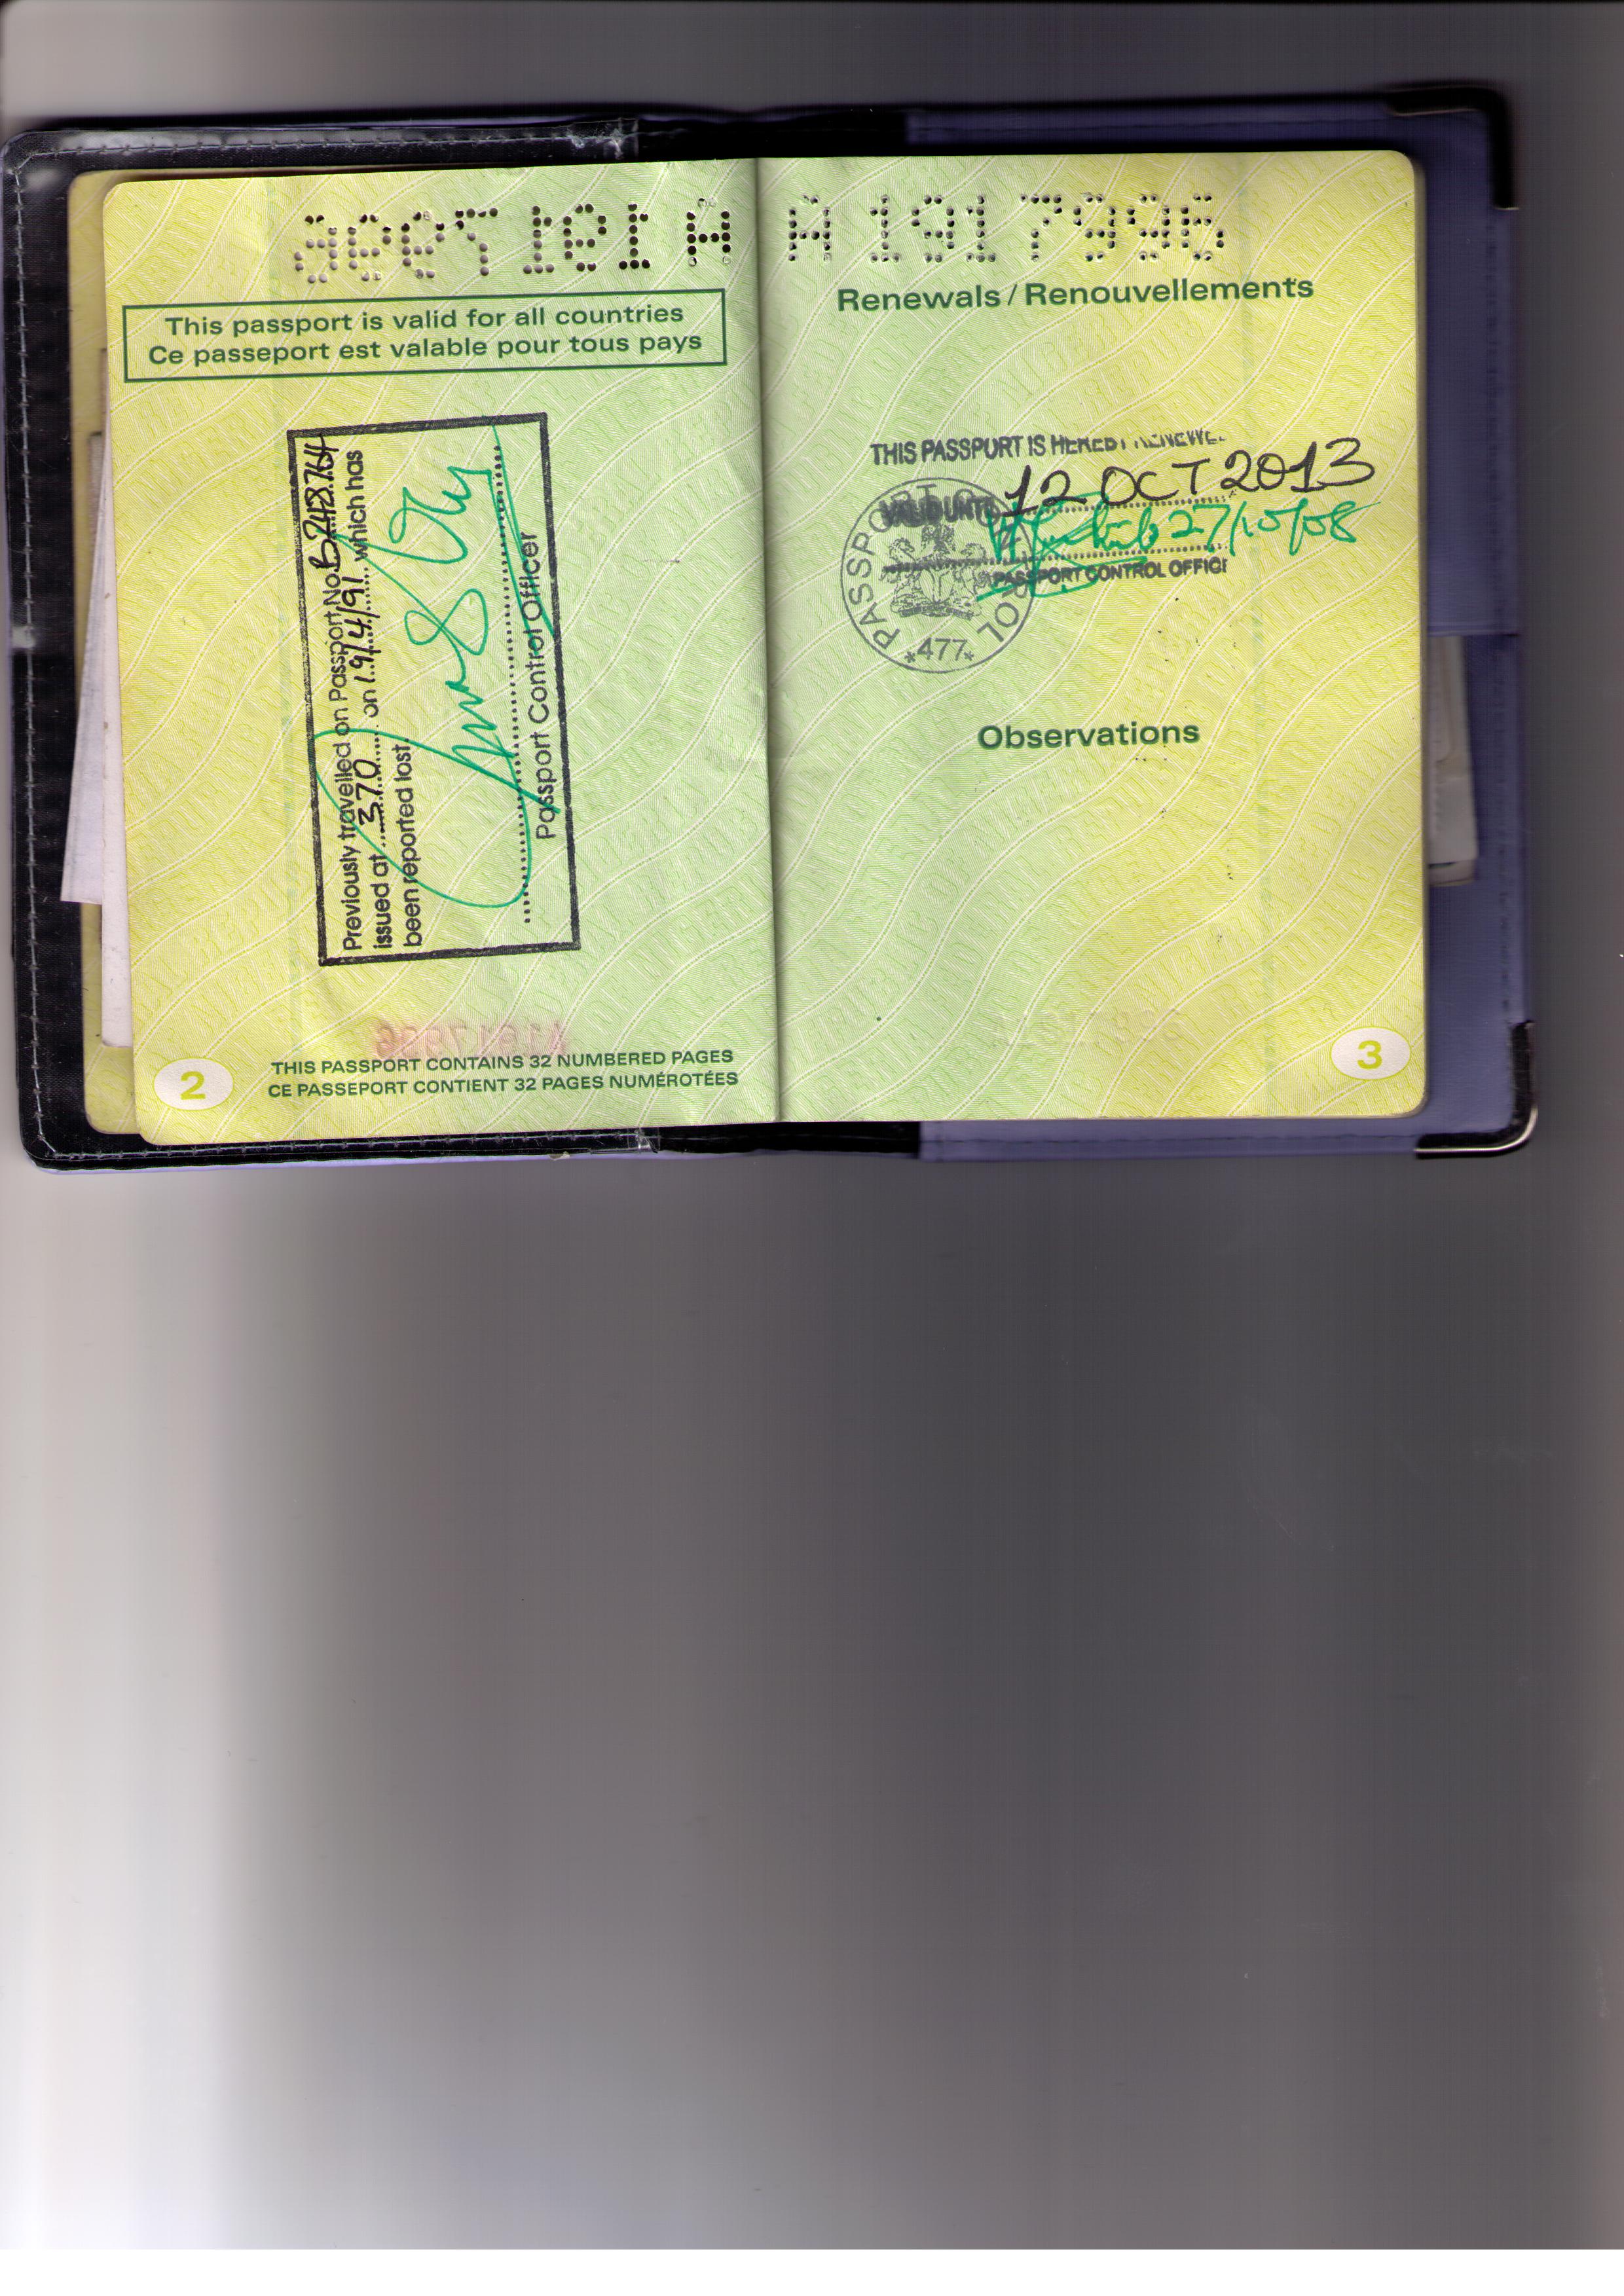 A1917996
This passport is valid for all countries
Ce passeport est valable pour tous pays
Previously travelled on Passport No. B248764
issued at 370 on 19/4/91 which has
been reported lost.
Passport Control Officer
A1917996
THIS PASSPORT CONTAINS 32 NUMBERED PAGES
CE PASSEPORT CONTIENT 32 PAGES NUMÉROTÉES
2
A 1917996
Renewals / Renouvellements
THIS PASSPORT IS HEREBY RENEWE
VALID UNTIL 12 OCT 2013
27/10/08
PASSPORT CONTROL OFFICE
PASSPORT CONTROL
*477*
Observations
3